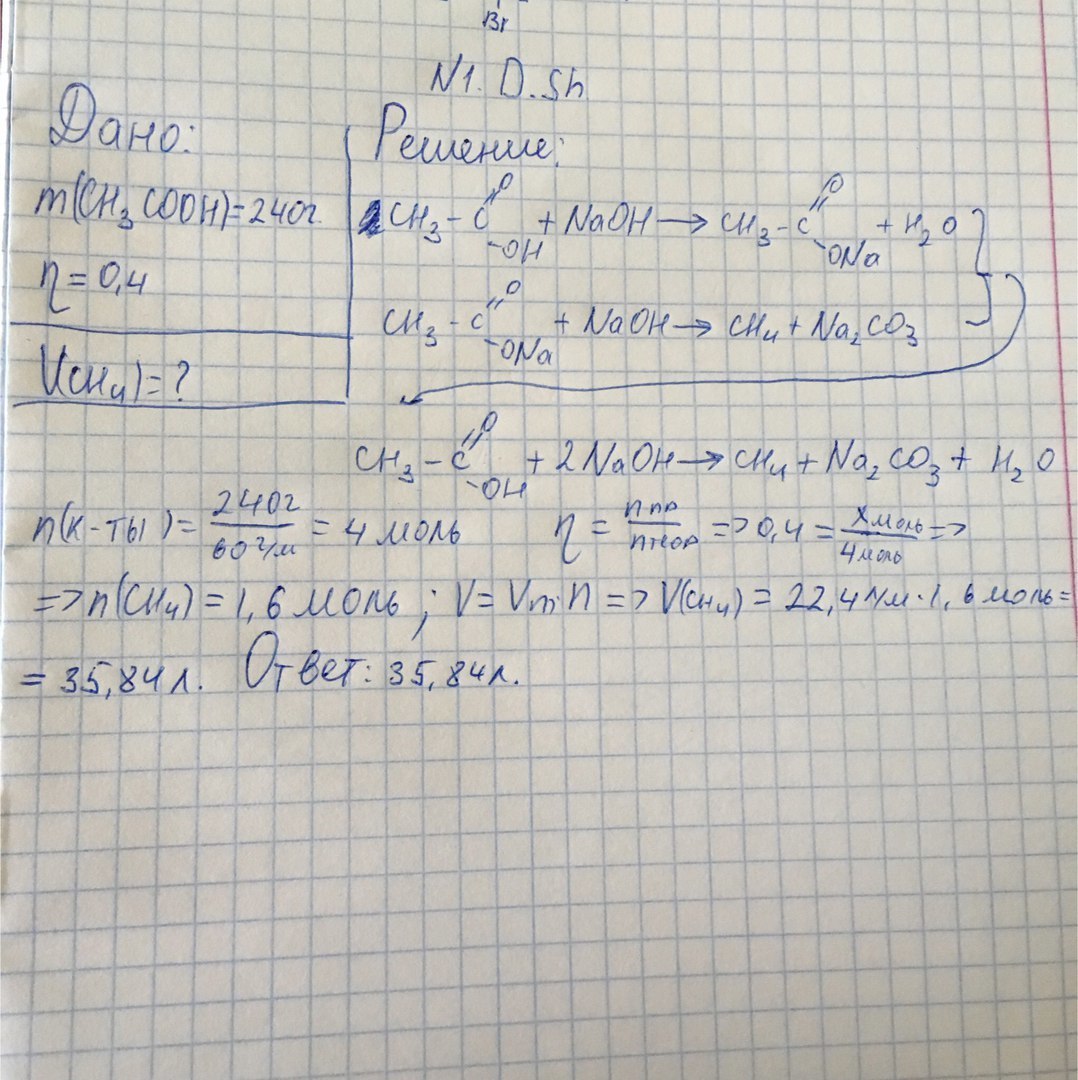 Br
N1. D.Sh
Дано:
m(CH3COOH)=240г.
η = 0,4
V(CH4) = ?
Решение:
CH3 - C =O -OH + NaOH → CH3 - C =O -ONa + H2O
CH3 - C =O -ONa + NaOH → CH4 + Na2CO3
CH3 - C =O -OH + 2NaOH → CH4 + Na2CO3 + H2O
n(к-ты) = 240г / 60г/м = 4 моль η = nпр / nтеор => 0,4 = xмоль / 4моль =>
=> n(CH4) = 1,6 моль ; V = Vm·n => V(CH4) = 22,4 л/м · 1,6 моль =
= 35,84 л. Ответ: 35,84 л.